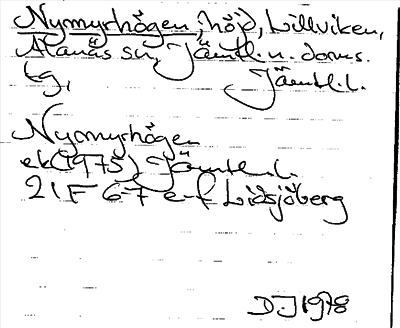 Nymyrhögen, höjd, Lillviken,
Alanäs sn, Jämtl. n. doms.
tg, Jämtl. l.
Nymyrhögen
ek (1975) Jämtl. l.
21F 6-7 e-f Lidsjöberg
DJ 1978